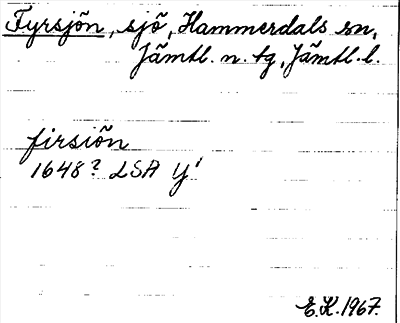 Fyrsjön, sjö, Hammerdals sn,
Jämtl. n. tg, Jämtl. l.
firsiön
1648? LSA Y'
E.K. 1967.